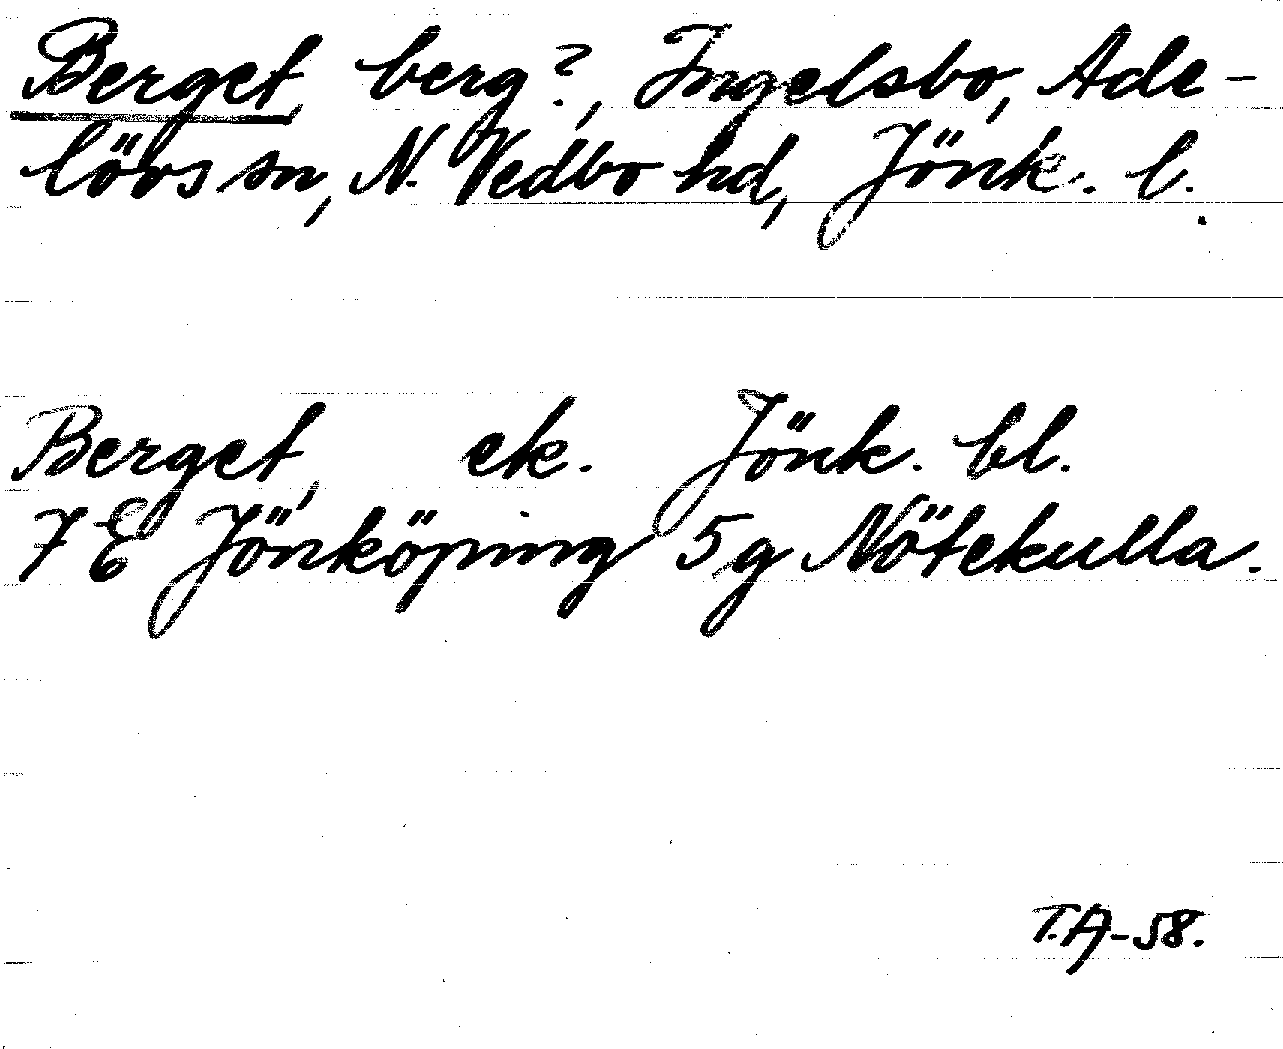 Berget, berg?, Ingelsbo, Ade-
lövs sn, N. Vedbo hd, Jönk. l.
Berget, ek. Jönk. bl.
7 E Jönköping 5 g Nötekulla.
T.A-58.